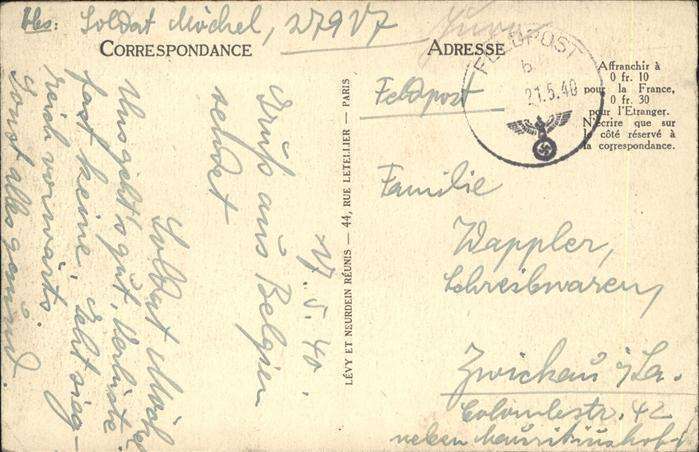 Abs: Soldat Möckel, 27917
CORRESPONDANCE
ADRESSE
FELDPOST
b
21.5.40
Affranchir à
0 fr. 10
pour la France,
0 fr. 30
pour l'Etranger.
N'écrire que sur
le côté réservé à
la correspondance.
17.5.40.
Gruß aus Belgien
sendet
Soldat Möckel
Uns geht's gut, Verluste
fast keine. Geht sieg-
reich vorwärts
Sonst alles gesund.
LÉVY ET NEURDEIN RÉUNIS — 44, RUE LETELLIER — PARIS
Feldpost
Familie
Wappler,
Schreibwaren,
Zwickau i/Sa.
42
neben